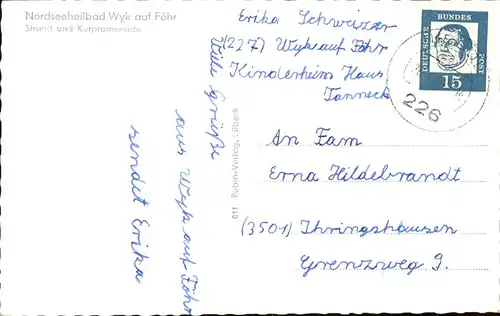 Nordseeheilbad Wyk auf Föhr
Strand und Kurpromenade
Erika Schweizer
(2277) Wyk auf Föhr
Kinderheim Haus
Tanneck
Viele Grüße
aus Wyk auf Föhr
sendet Erika
011 Rubin-Verlag, Lübeck
DEUTSCHE
BUNDES
POST
15
226
An Fam
Erna Hildebrandt
(3501) Ihringshausen
Grenzweg 9.